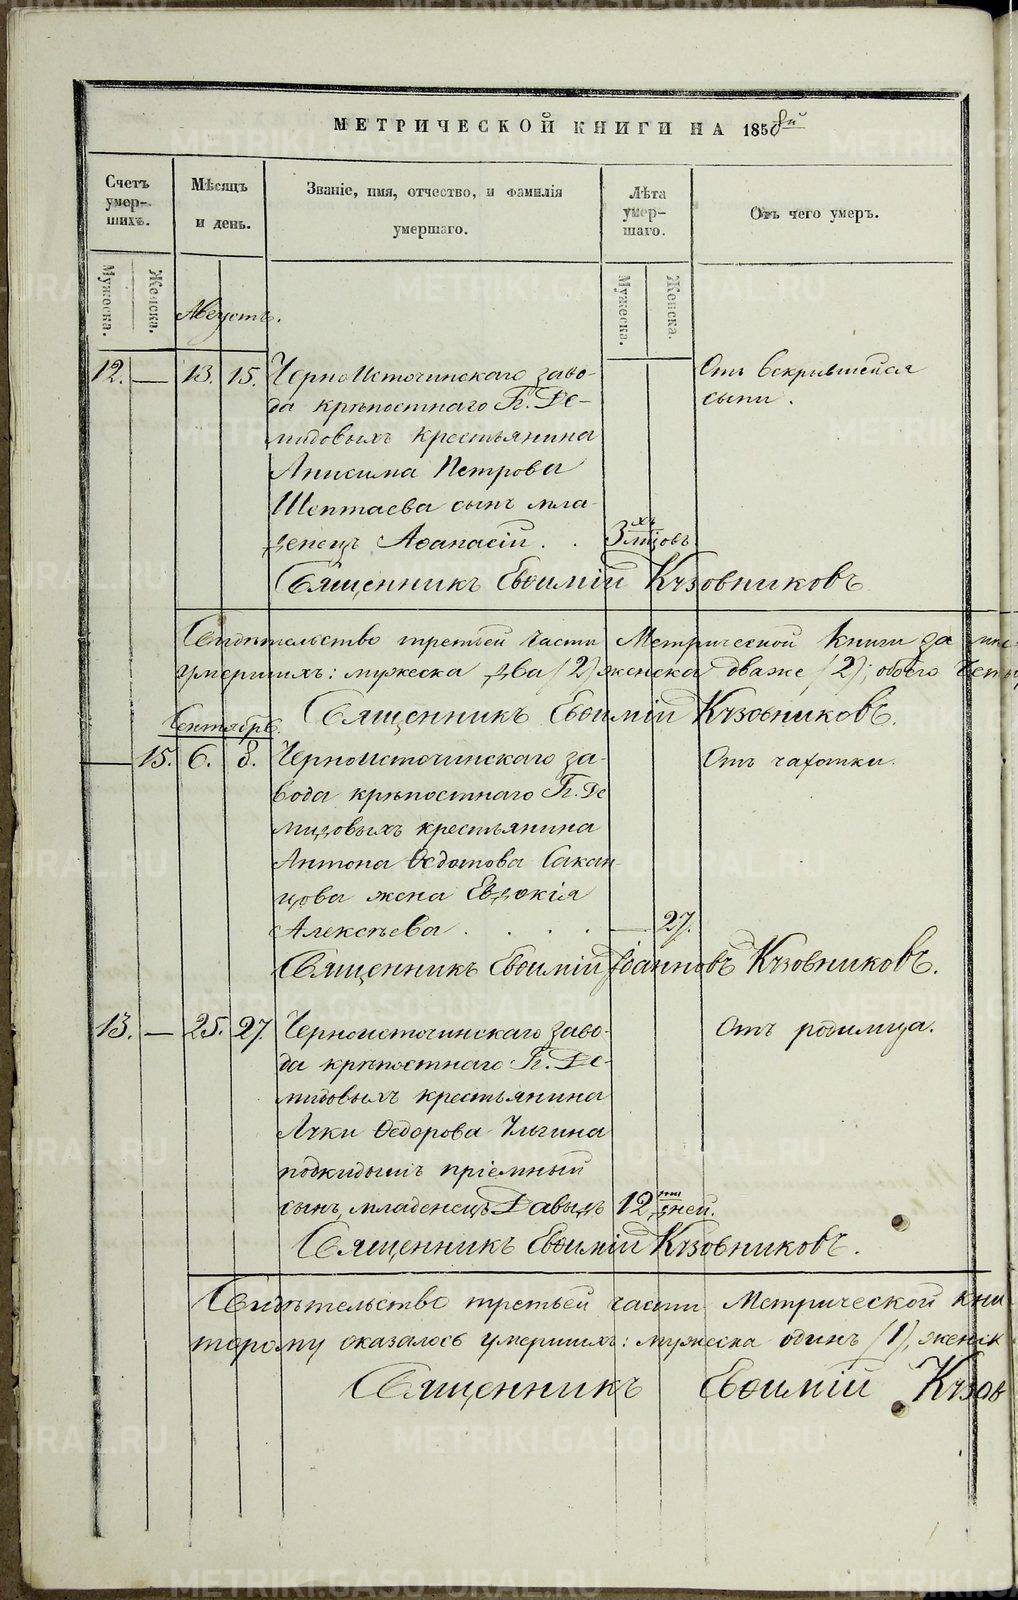 МЕТРИЧЕСКОЙ КНИГИ НА 1858й
Счетъ умер-шихъ.
Мѣсяцъ и день.
Званіе, имя, отчество, и фамилія умершаго.
Лѣта умер-шаго.
Отъ чего умеръ.
Мужеска.
Женска.
Мужеска.
Женска.
Августъ.
12. — 13. 15. Черноисточинскаго заво- Отъ вскрывшейся
да крѣпостнаго Гг. Де- сыпи.
мидовыхъ крестьянина
Анисима Петрова
Шептаева сынъ мла-
денецъ Аѳанасій . . 3хъ мцовъ
Священникъ Евѳимій Кузовниковъ
Свидѣтельство третьей части Метрической книги за
умершихъ: мужеска два /2/ женска двѣже /2/, обоего
Священникъ Евѳимій Кузовниковъ.
Сентябрь.
— 15. 6. 8. Черноисточинскаго за- Отъ чахотки.
вода крѣпостнаго Гг. Де
мидовыхъ крестьянина
Антона Ѳедотова Сакан-
цова жена Евдокія
Алексѣева . . . . — 27.
Священникъ Евѳимій Іоанновъ Кузовниковъ.
13. — 25. 27. Черноисточинскаго заво- Отъ родимца.
да крѣпостнаго Гг. Де-
мидовыхъ крестьянина
Луки Ѳедорова Ильина
подкидышъ пріемный
сынъ, младенецъ Давыдъ 12ти дней.
Священникъ Евѳимій Кузовниковъ.
Свидѣтельство третьей части Метрической кни
торому оказалось умершихъ: мужеска одинъ /1/, женск
Священникъ Евѳимій Кузов